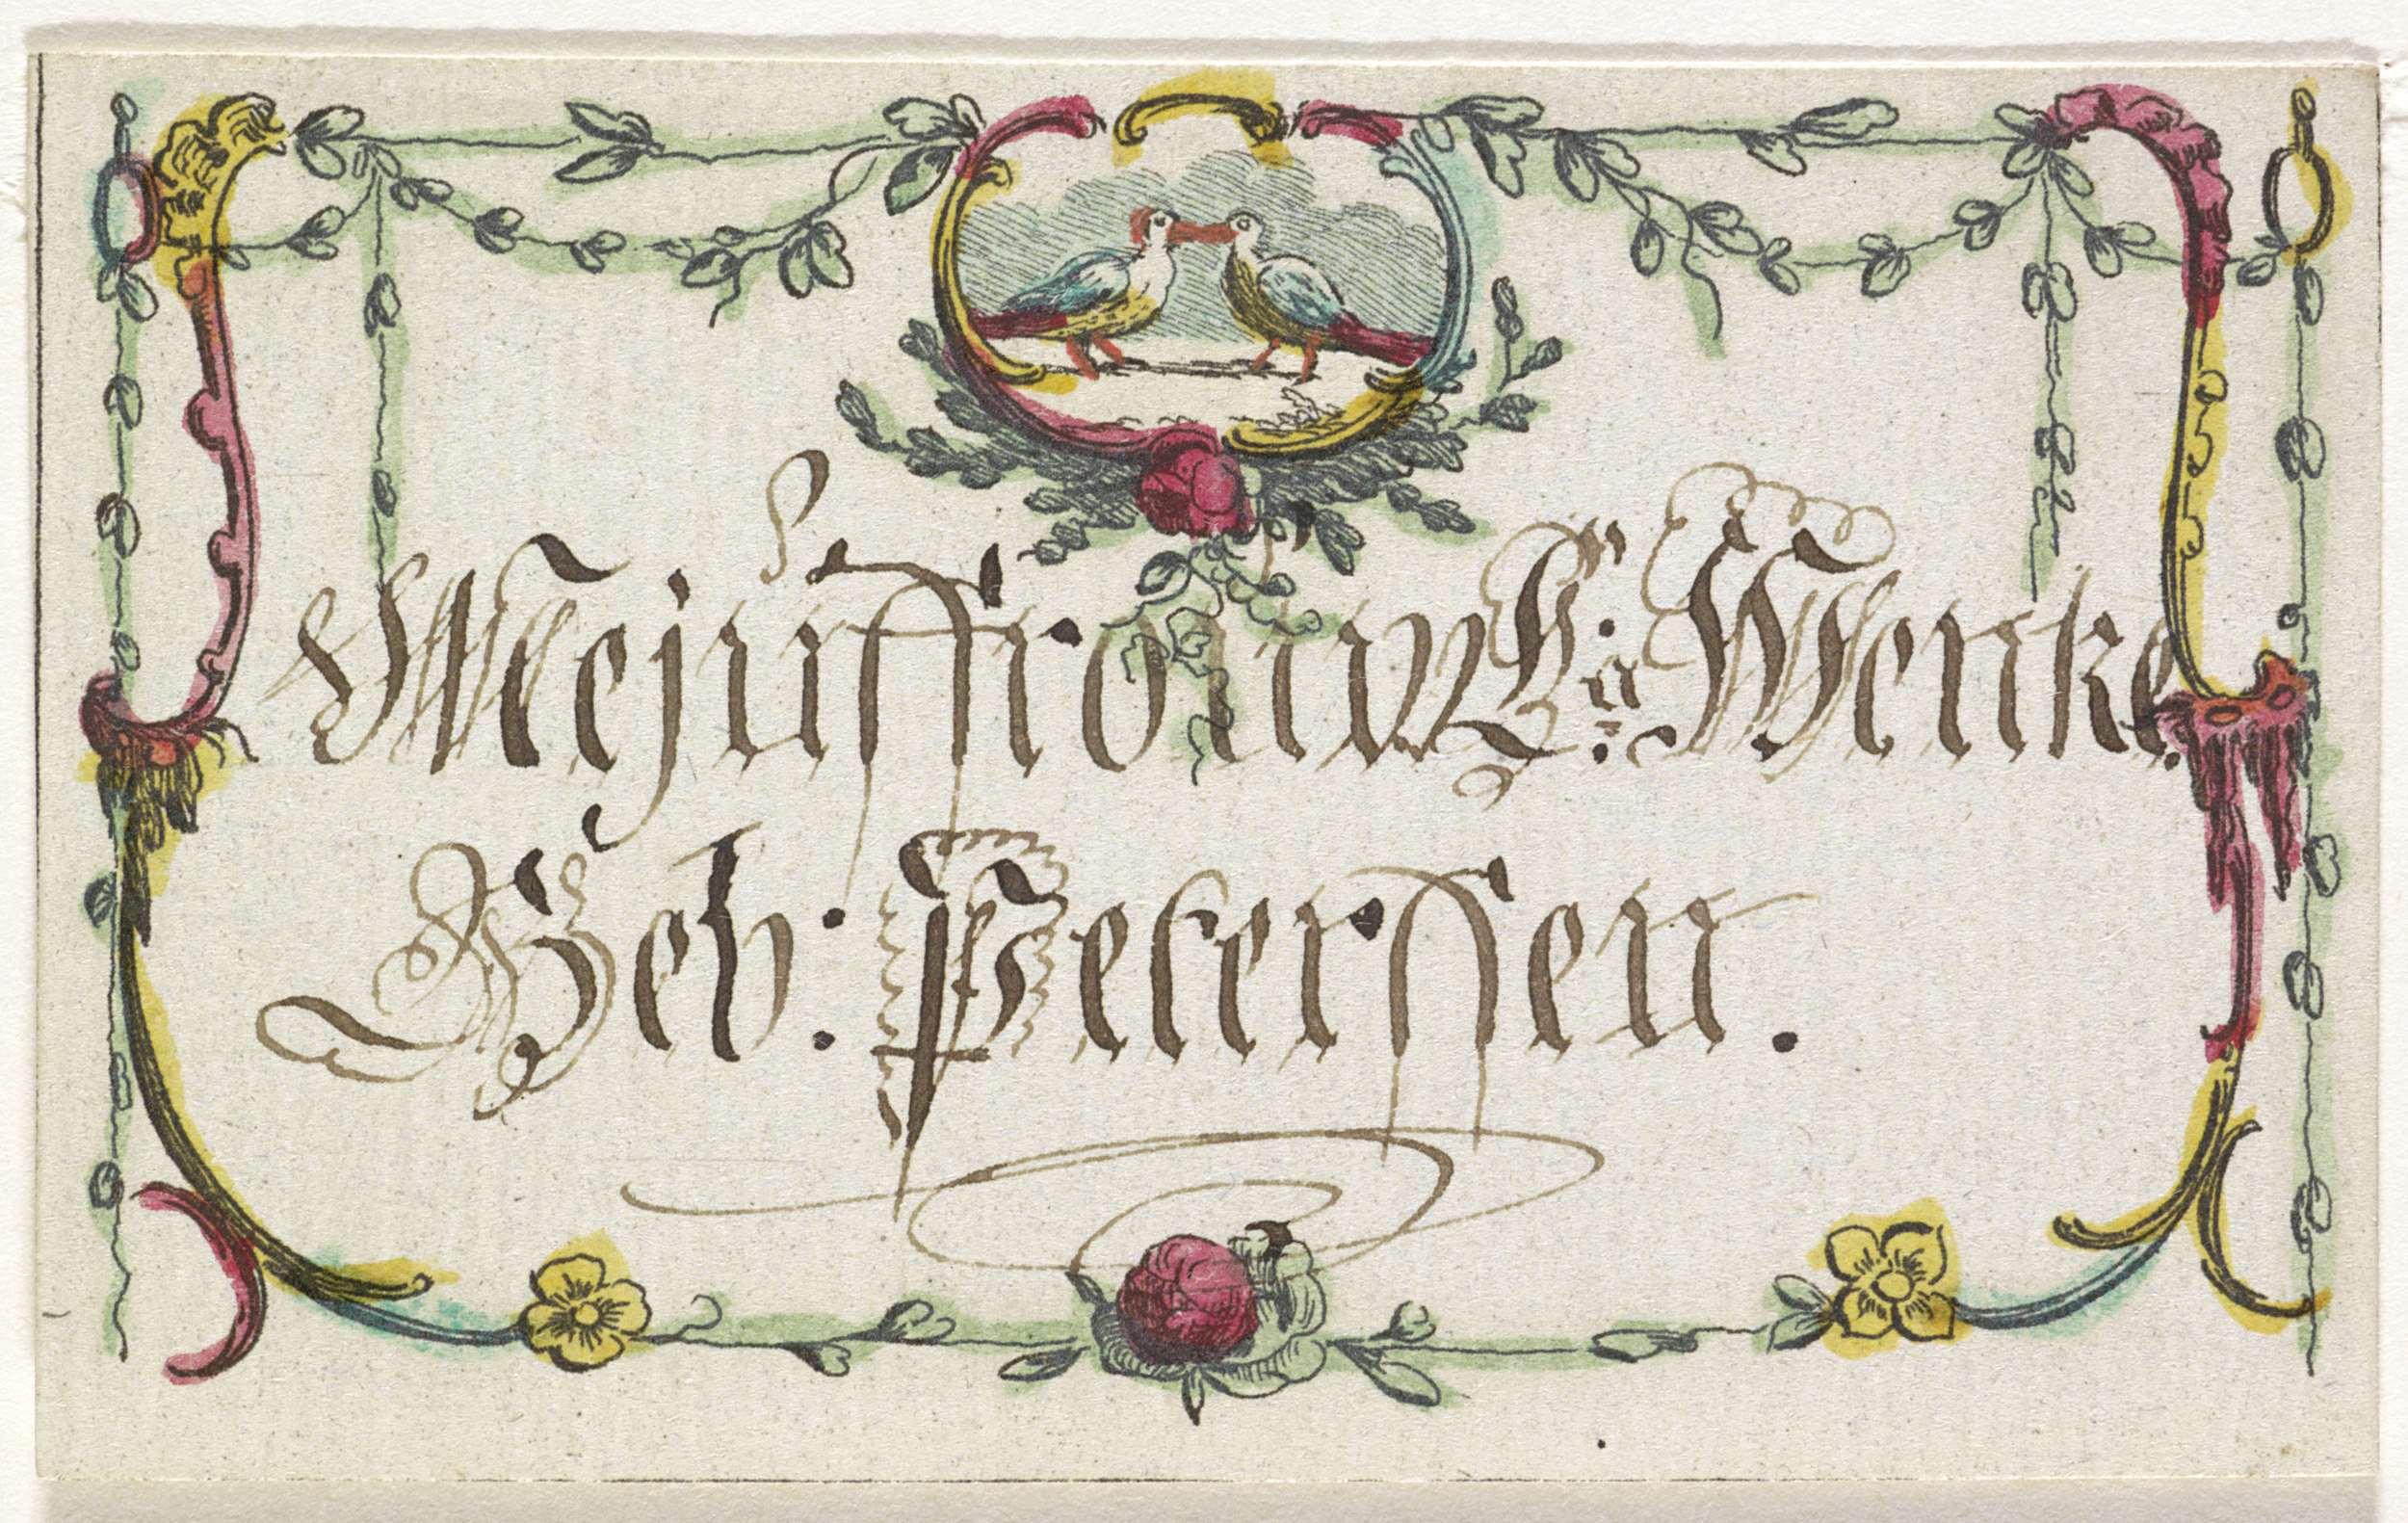 Mejuffrouw C:a Wenke.
Geb: Peterssen.